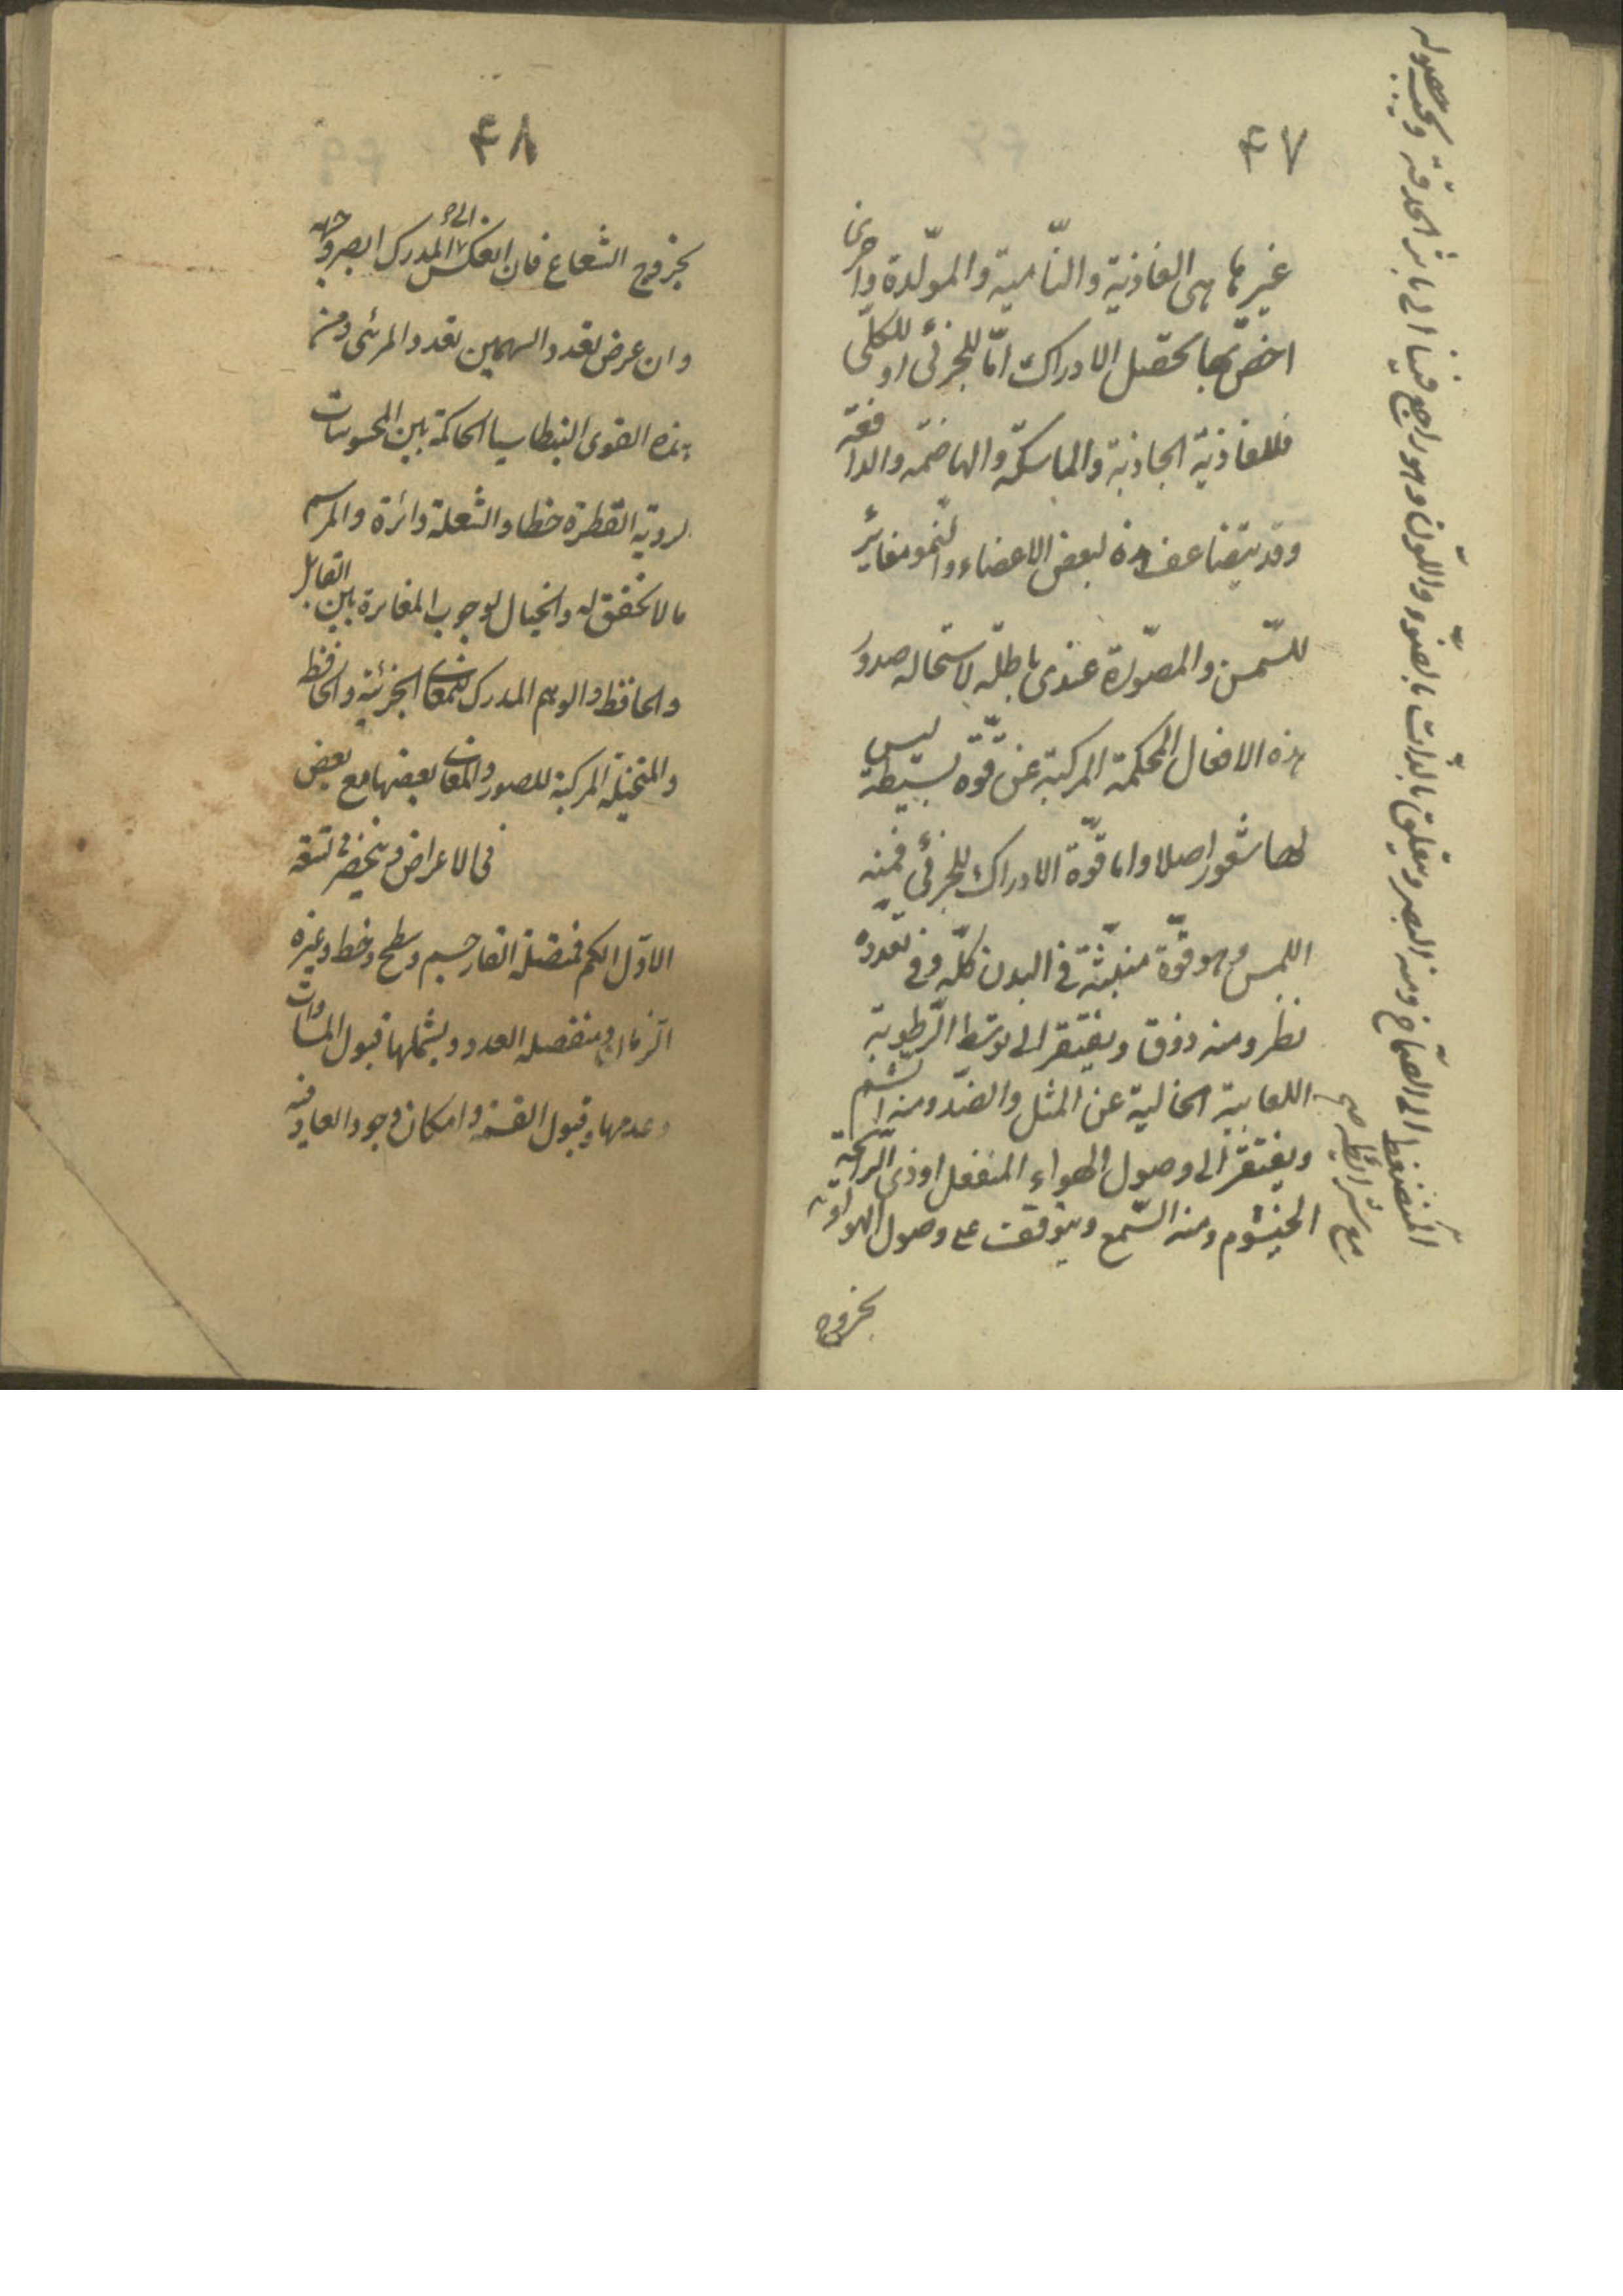 ٤٧
غيرها هى الغاذية والنّامية والمولّدة واخرى
اخصّ بها يحصل الادراك امّا للجزئى او للكلّى
فللغاذية الجاذبة والماسكة والهاضمة والدافعة
وقد يتضاعف هذه لبعض الاعضاء والنّمو مغاير
للسّمن والمصوّرة عندى باطلة لاستحالة صدور
هذه الافعال المحكمة المركبة عن قوّة بسيطة ليس
لها شعور اصلا واما قوّة الادراك للجزئى فمنه
اللمس وهو قوّة منبثّة فى البدن كلّه وفى تعدده
نظر ومنه ذوق ويفتقر الى توسّط الرّطوبة
اللعابية الخالية عن المثل والضدّ ومنه الشم
ويفتقر الى وصول الهواء المنفعل او ذى الرّائحة
الخيشوم ومنه السّمع ويتوقف على وصول الهواء
المنضغط الى الصّماخ ومنه البصر ويتعلق بالذّات بالضّوء واللّون وهو راجع فينا الى تاثر الحدقة ويجب حصوله
مع شرائطه صح
بخروج
٤٨
بخروج الشعاع فان انعكس الى المدرك ابصر وجهه
وان عرض تعدد السهمين تعدد المرئى ومن
هذه القوى البنطاسيا الحاكمة بين المحسوسات
لروية القطرة خطا والشعلة دائرة والمبرسم
ما لا تحقق له والخيال لوجوب المغايرة بين القابل
والحافظ والوهم المدرك للمعانى الجزئية والحافظ
والمتخيلة المركبة للصور والمعانى بعضها مع بعض
فى الاعراض وينحصر فى تسعة
الاوّل الكم فمتصله القار جسم وسطح وخط وغيره
الزمان ومنفصله العدد ويشملها قبول المساوات
وعدمها وقبول القسمة وامكان وجود العاد فيه